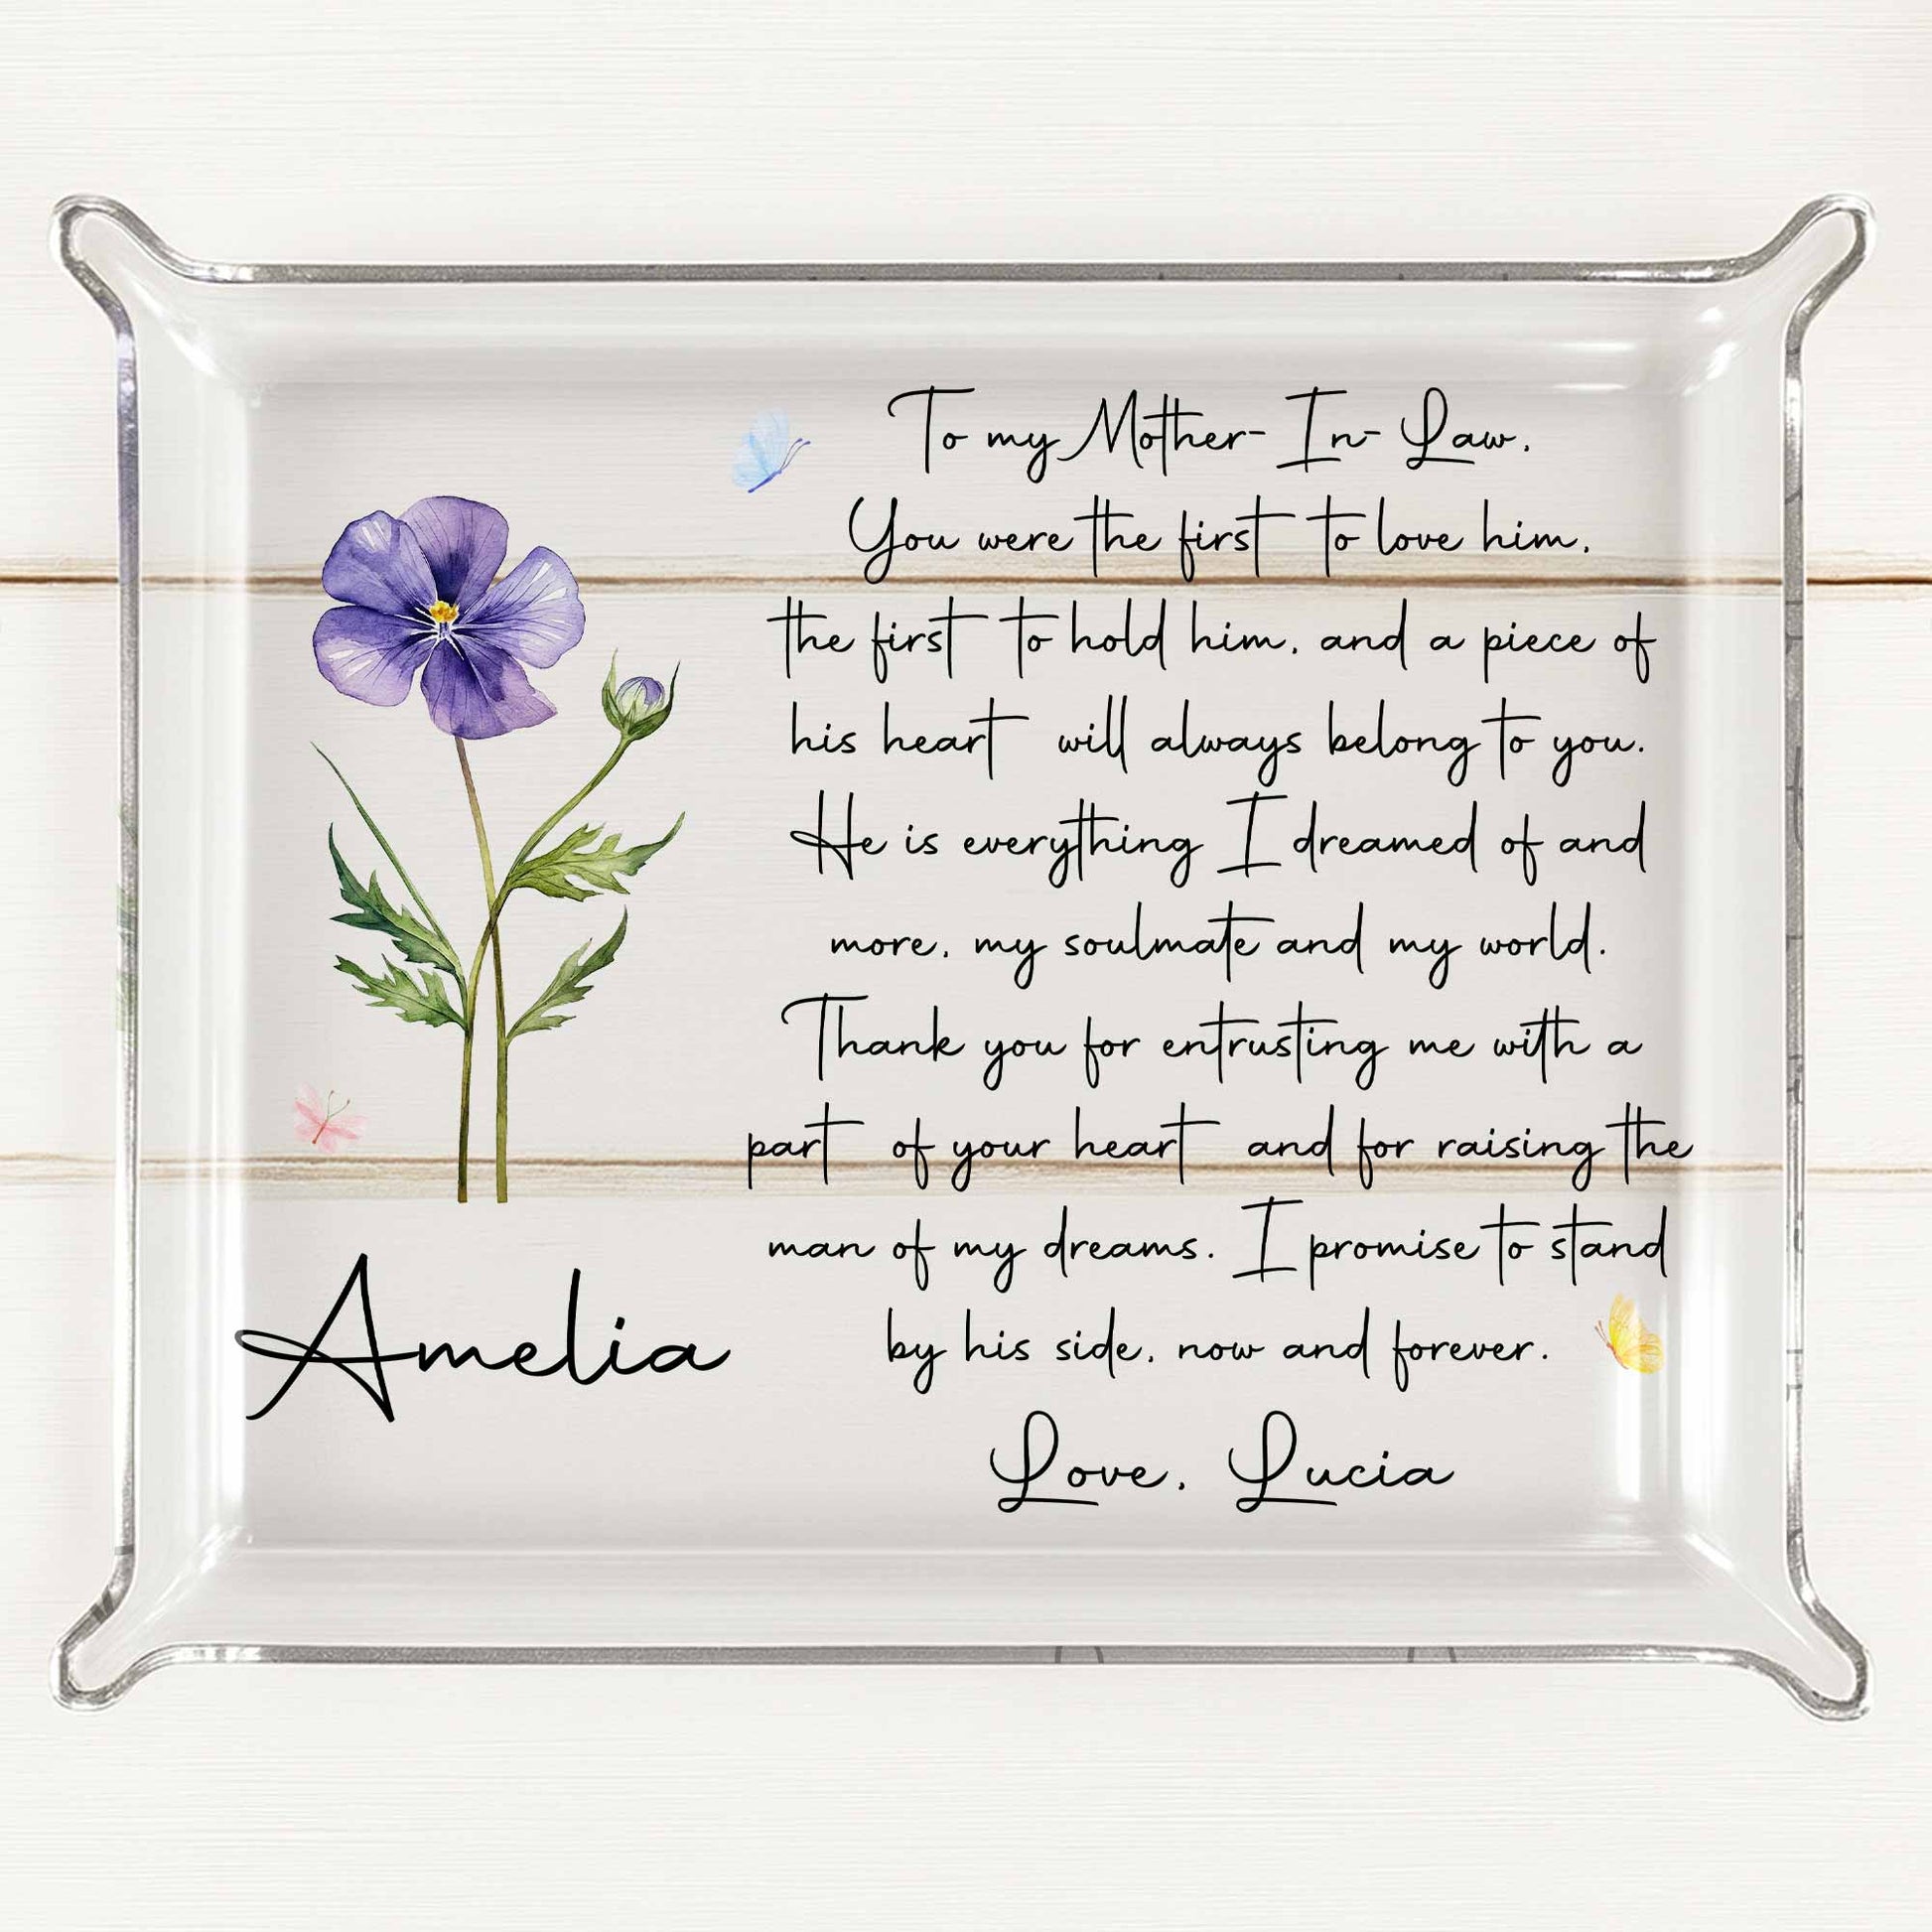 To my Mother-In-Law,
You were the first to love him,
the first to hold him, and a piece of
his heart will always belong to you.
He is everything I dreamed of and
more, my soulmate and my world.
Thank you for entrusting me with a
part of your heart and for raising the
man of my dreams. I promise to stand
by his side, now and forever.
Love, Lucia
Amelia